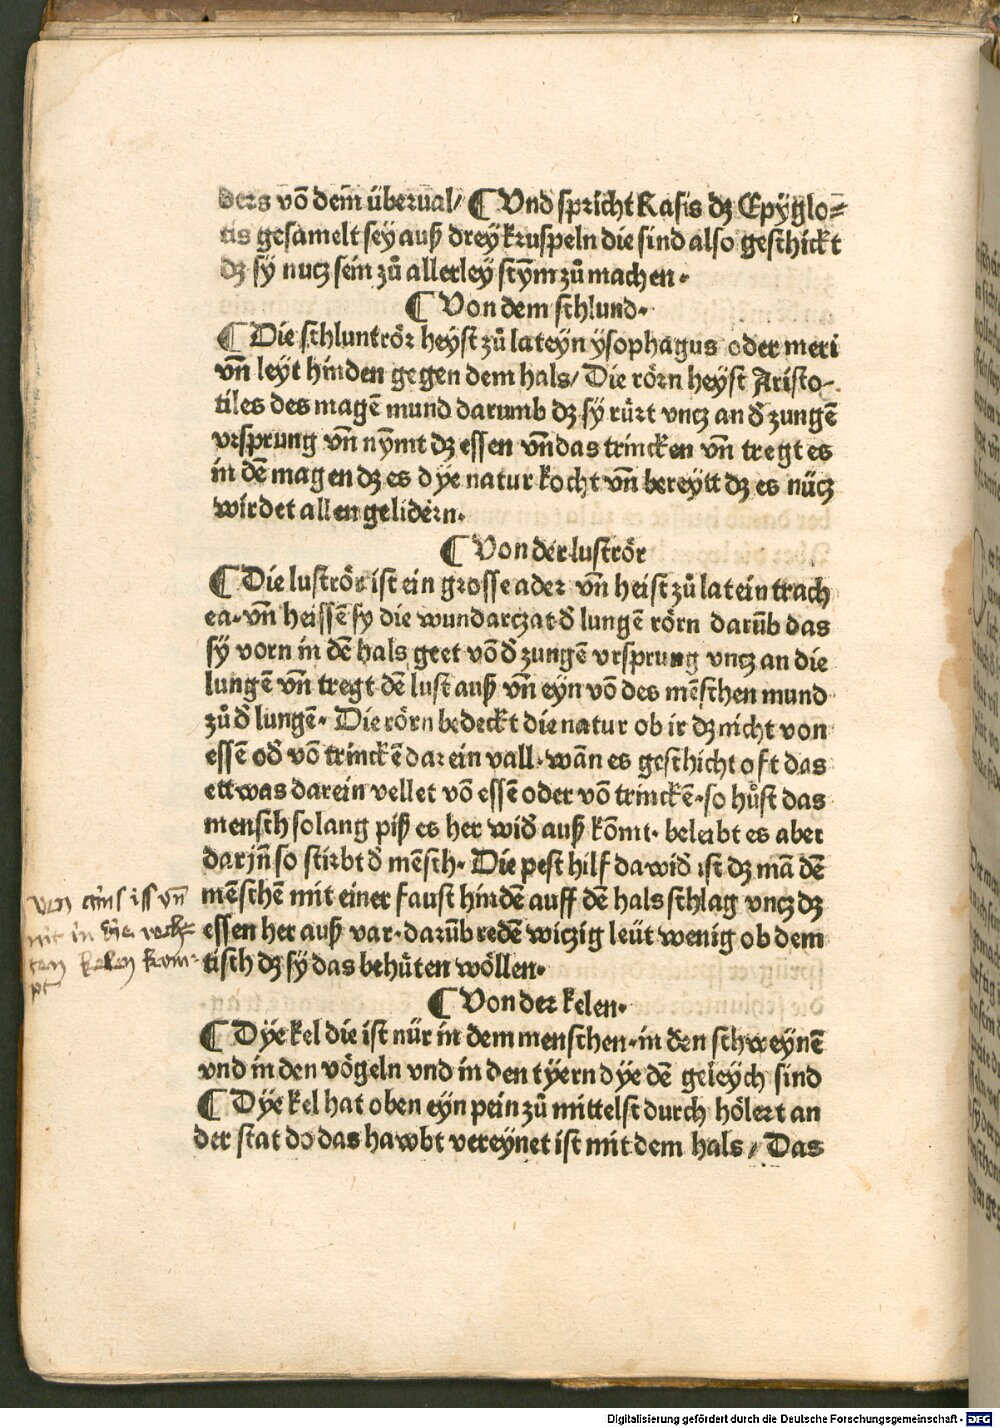 ders võ dem̃ überual/ ¶ Vnd spricht Rasis dʒ Epÿglo⸗
tis gesamelt sey auß drey kruspeln die sind also geschickt
dʒ sÿ nucz sein zů allerley stÿm zů machen.
¶ Von dem schlund.
¶ Die schluntrör heyst zů lateyn ysophagus oder meri
vñ leyt hinden gegen dem hals/ Die rörn heyst Aristo⸗
tiles des magẽ mund darumb dʒ sÿ růrt vncz an d̕ zungẽ
vrsprung vñ nÿmt dʒ essen vñ das trincken vñ tregt es
in dẽ magen dʒ es dye natur kocht vñ bereytt dʒ es nücz
wirdet allen gelidern.
¶ Von der luftrör
¶ Die luftrör ist ein grosse ader vñ heist zů latein trach
ea. vñ heissẽ sy die wundarczat d̕ lungẽ rörn darũb das
sÿ vorn in dẽ hals geet võ d̕ zungẽ vrsprung vncz an die
lungẽ vñ tregt dẽ luft auß vñ eyn võ des mẽschen mund
zů d̕ lungẽ. Die rörn bedeckt die natur ob ir dʒ nicht von
essẽ od̕ võ trinckẽ dar ein vall. wãn es geschicht oft das
ettwas darein vellet võ essẽ oder võ trinckẽ. so hůst das
mensch solang piß es her wid̕ auß kõmt. beleibt es aber
darjñ so stirbt d̕ mẽsch. Die pest hilf da wid̕ ist dʒ mã dẽ
mẽschẽ mit einer faust hindẽ auff dẽ hals schlag vncz dʒ
essen her auß var. darũb redẽ wiczig leüt wenig ob dem
tisch dʒ sÿ das behůten wöllen.
ven eins iss vñ
nit in die rech⸗
ten kelen kom⸗
pt
¶ Von der kelen.
¶ Dye kel die ist nür in dem menschen. in den schweynẽ
vnd in den vögeln vnd in den tyern dye dẽ geleych sind
¶ Dye kel hat oben eyn pein zů mittelst durch hölert an
der stat do das hawbt vereynet ist mit dem hals / Das
Digitalisierung gefördert durch die Deutsche Forschungsgemeinschaft - DFG